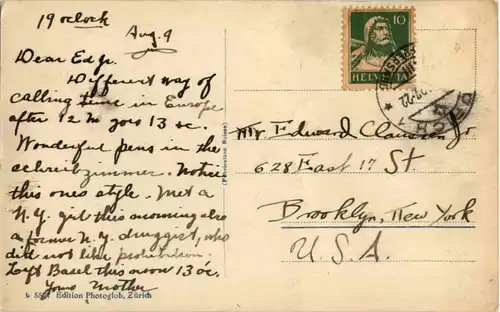 19 oclock
Aug. 9
Dear Ed Jr.
Different way of
calling time in Europe
after 12 N goes 13 oc.
Wonderful pens in the
schreibzimmer. Notice
this ones style. Met a
N.Y. girl this morning also
a former N.Y. druggist, who
did not like prohibition.
Left Basel this noon 13 oc.
Yours Mother
Edition Photoglob, Zürich
10
HELVETIA
Mr Edward Clausson Jr
628 East 17 St
Brooklyn, New York
U.S.A.